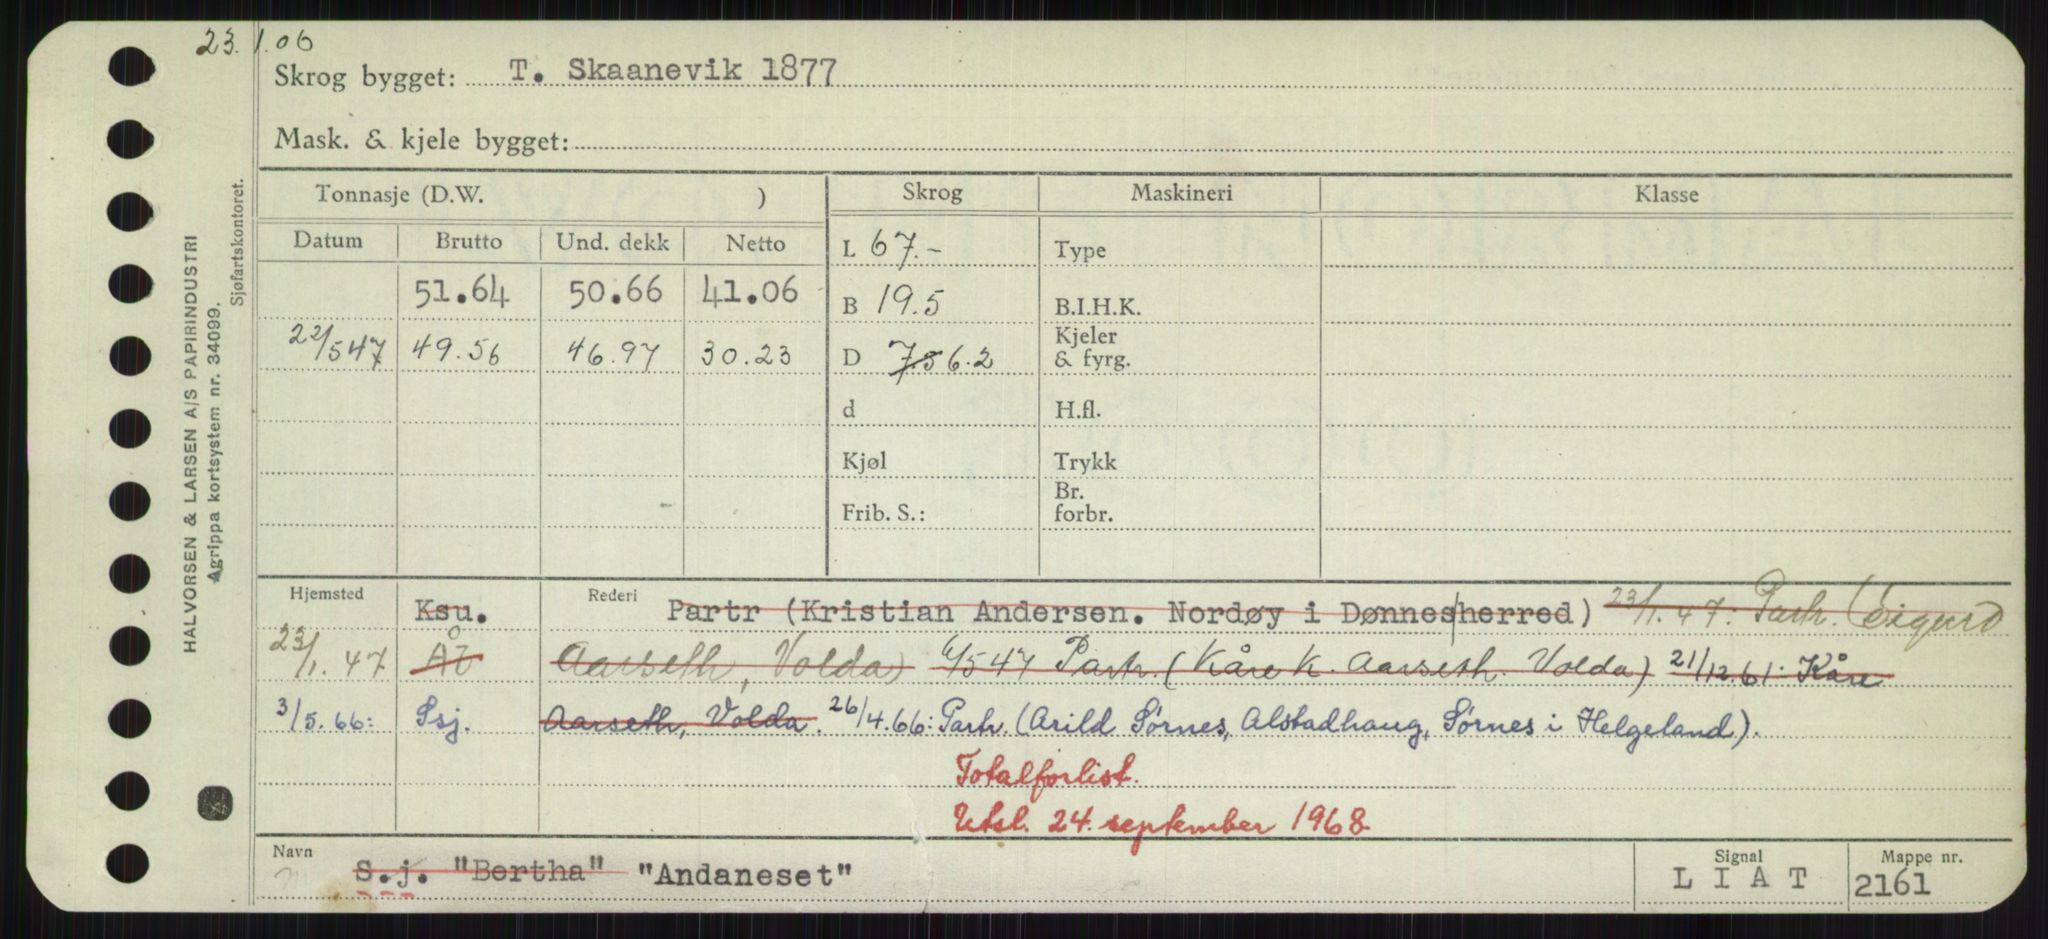 23.1.06
Skrog bygget: T. Skaanevik 1877
Mask. & kjele bygget:
HALVORSEN & LARSEN A/S PAPIRINDUSTRI
Agrippa kortsystem nr. 34099.
Sjøfartskontoret.
Tonnasje (D.W. ) Skrog Maskineri Klasse
Datum Brutto Und. dekk Netto L 67.- Type
51.64 50.66 41.06 B 19.5 B.I.H.K.
22/5 47 49.56 46.97 30.23 D 7.5 6.2 Kjeler & fyrg.
d H.fl.
Kjøl Trykk
Frib. S.: Br. forbr.
Hjemsted Ksu. Rederi Partr (Kristian Andersen. Nordøy i Dønnesherred) 23/1.47: Partr. (Sigurd
23/1.47 ÅÅ Aarseth, Volda) 6/5 47 Partr. (Kåre K. Aarseth. Volda) 21/12.61: Kåre
3/5.66: Ssj. Aarseth, Volda. 26/4.66: Partr. (Arild Sørnes, Alstadhaug, Sørnes i Helgeland).
Totalforlist.
Utsl. 24. september 1968
Navn S.j. "Bertha" "Andaneset" Signal L I A T Mappe nr. 2161